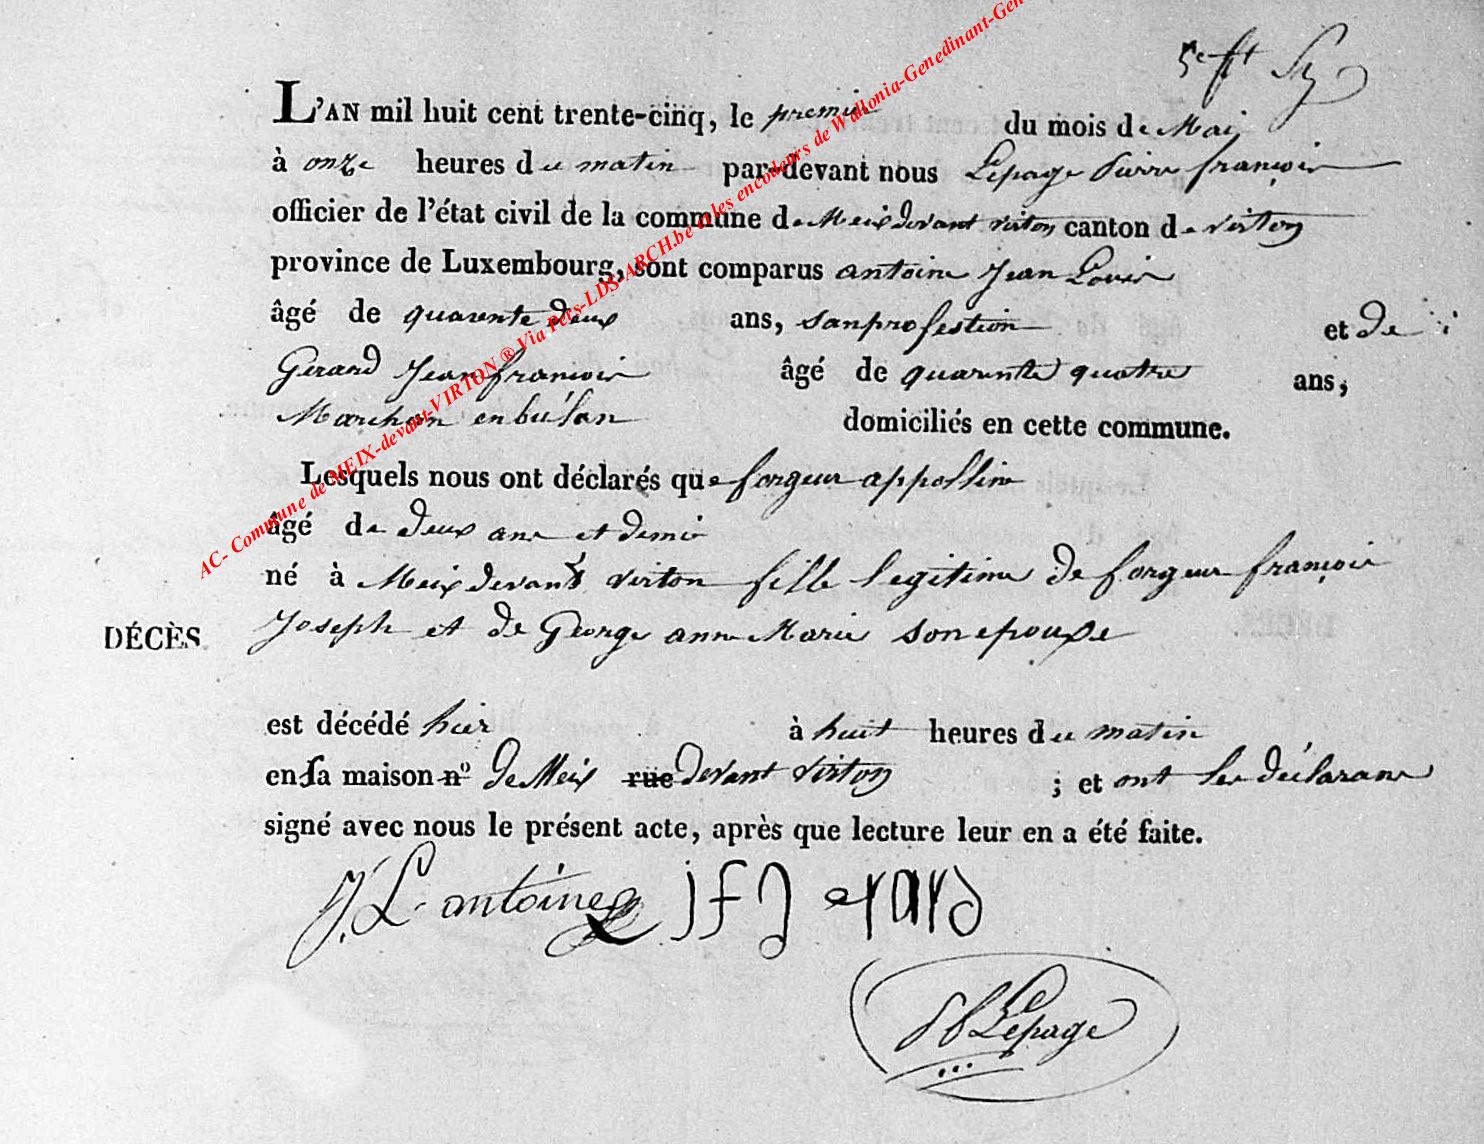 5e ft
L'AN mil huit cent trente-cinq, le premier du mois de Mai
à onze heures du matin par-devant nous Lepage Pierre françois
officier de l'état civil de la commune de Meix devant virton canton de virton
province de Luxembourg, sont comparus antoine Jean Louis
âgé de quarente deux ans, sanprofestion et de
Gerard Jean françois âgé de quarente quatre ans,
Marchan en bétan domiciliés en cette commune.
Lesquels nous ont déclarés que forgeur appolline
âgé de deux ans et demie
né à Meix devant virton fille legitime de forgeur françois
DÉCÈS. Joseph et de George anne Marie son epouse
est décédé hier à huit heures du matin
en sa maison n° de Meix rue devant virton ; et ont les déclarans
signé avec nous le présent acte, après que lecture leur en a été faite.
J. L. antoine jfg erard
Lepage
AC- Commune de MEIX-devant-VIRTON ® Via Pers-LDS-ARCH.be et les encodeurs de Wallonia-Genedinant-Gen